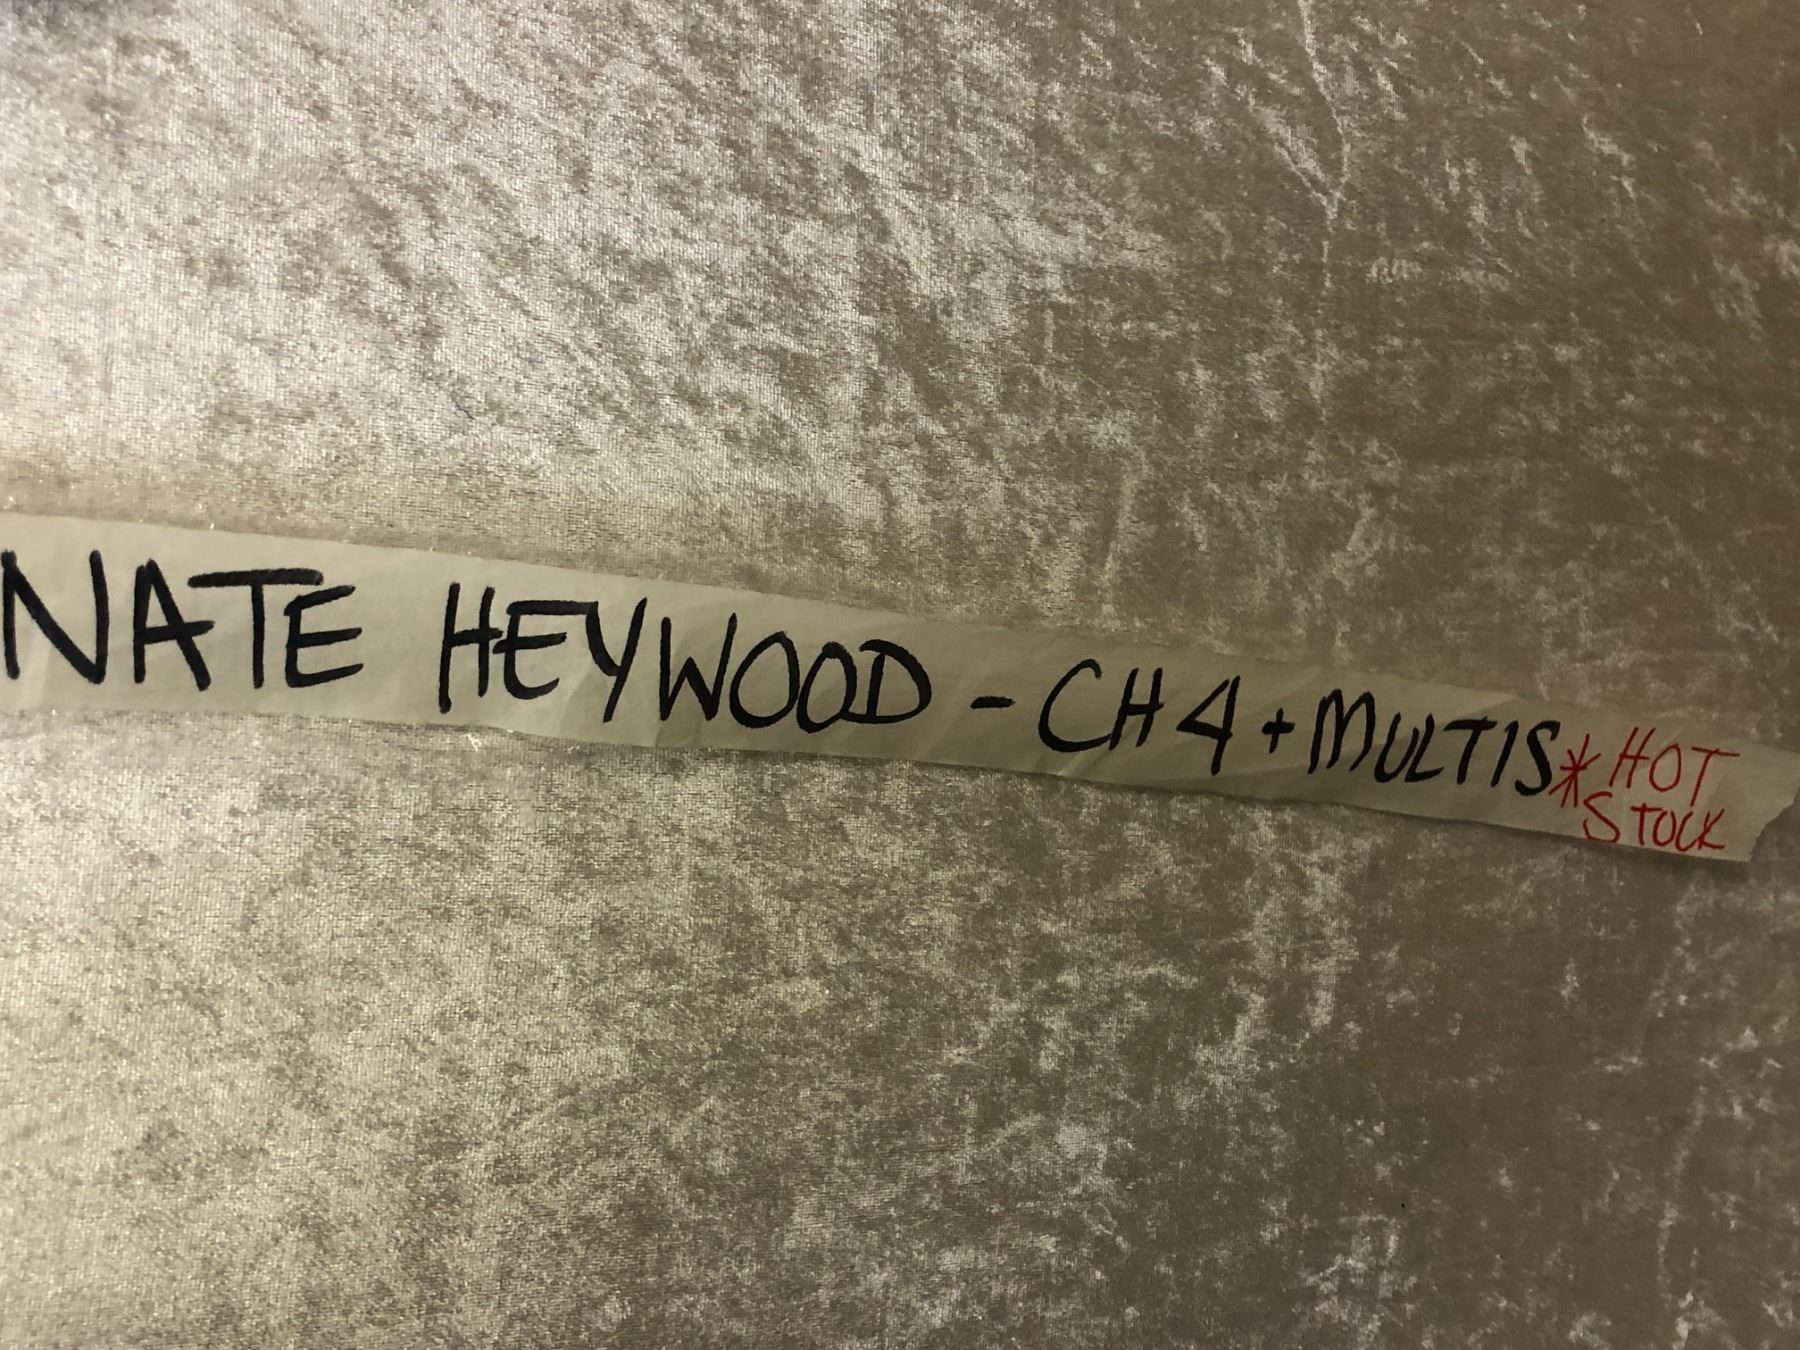 NATE HEYWOOD - CH 4 + MULTIS * HOT
STOCK